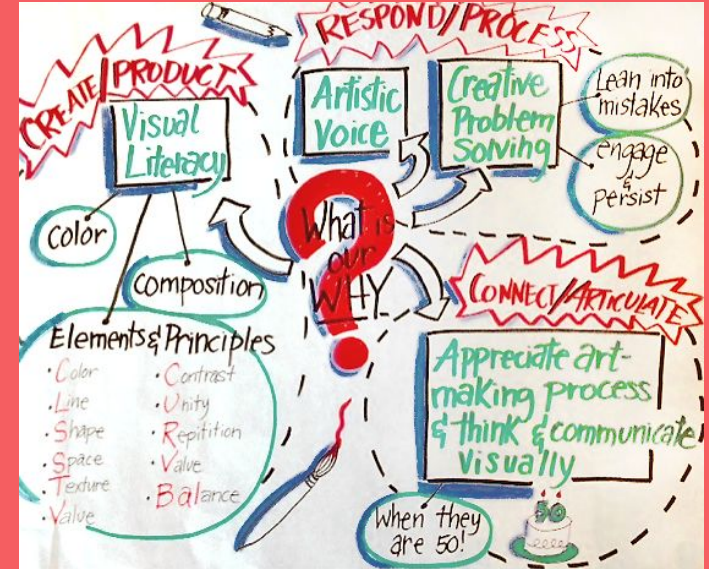 CREATE/PRODUCT
Visual
Literacy
color
composition
Elements & Principles
• Color
• Line
• Shape
• Space
• Texture
• Value
• Contrast
• Unity
• Repitition
• Value
• Balance
RESPOND/PROCESS
Artistic
Voice
Creative
Problem
Solving
Lean into
mistakes
engage
&
persist
What is
our
WHY
CONNECT/ARTICULATE
Appreciate art-
making process
& think & communicate
visually
When they
are 50!
50